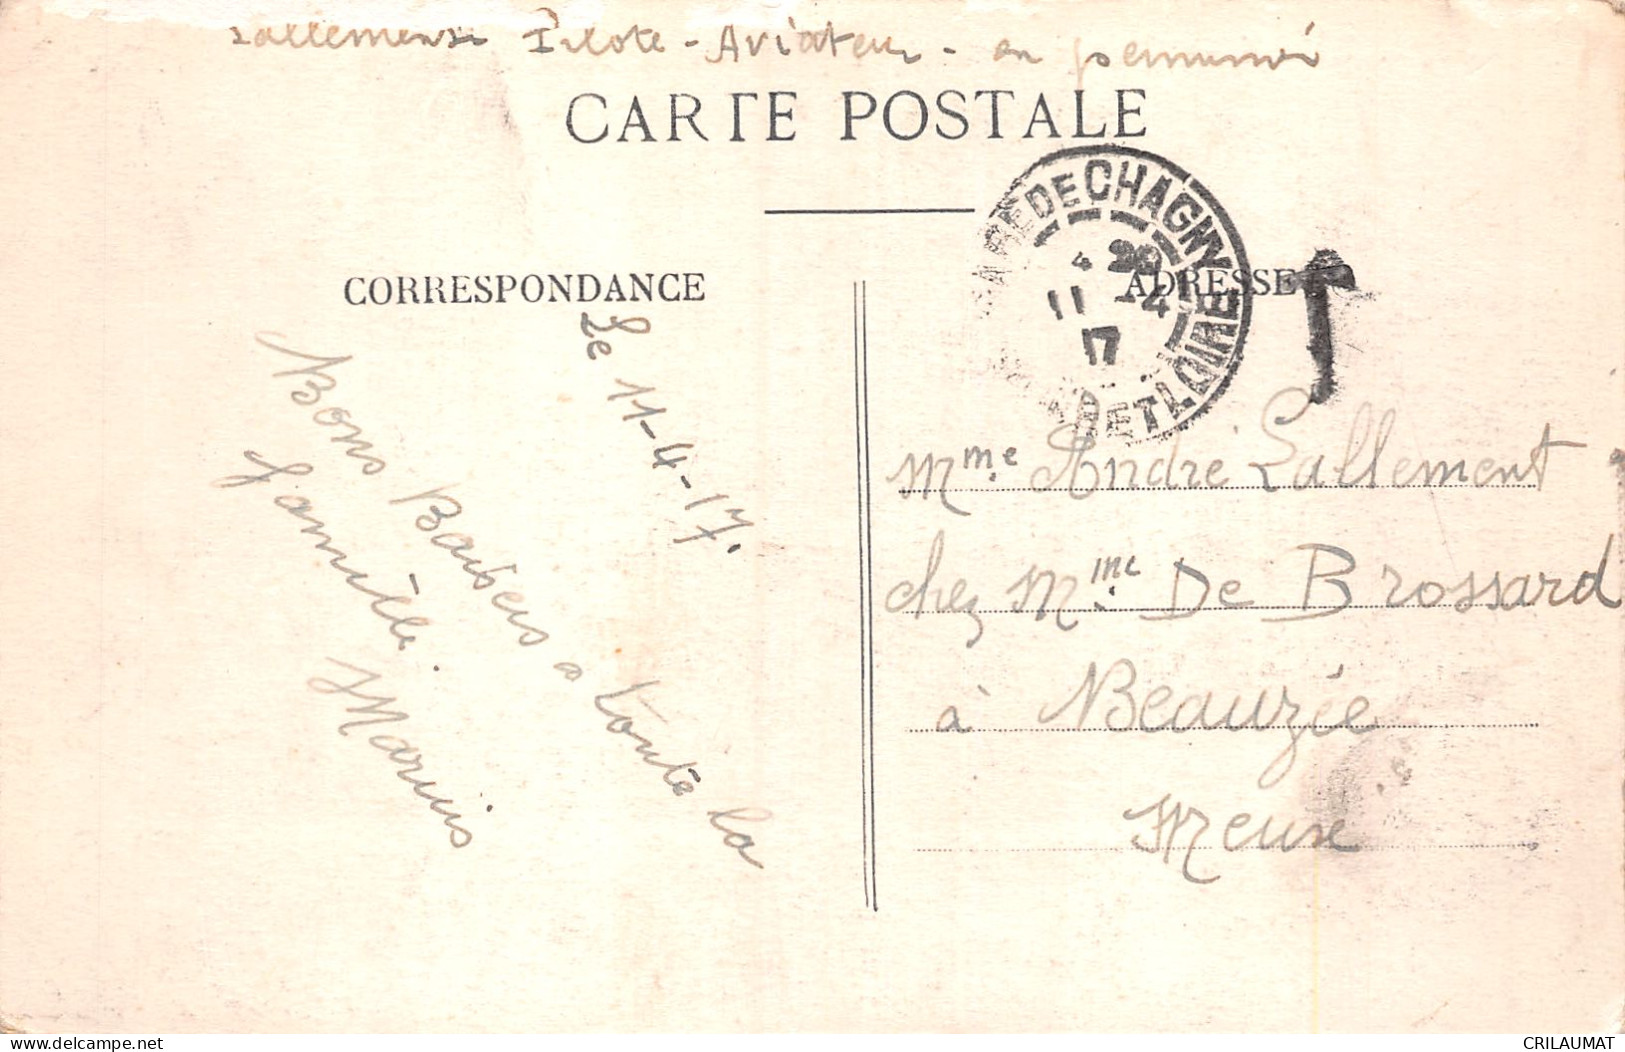 Lallement Pilote - Aviateur - en permission
CARTE POSTALE
GARE DE CHAGNY
4 20
11 -4
17
ET LOIRE
CORRESPONDANCE
ADRESSE
T
Le 11-4-17.
Bons Baisers a toute la
famille.
Marius
Mme André Lallement
chez Mme De Brossard
à Beauzée
Meuse
www.delcampe.net
CRILAUMAT